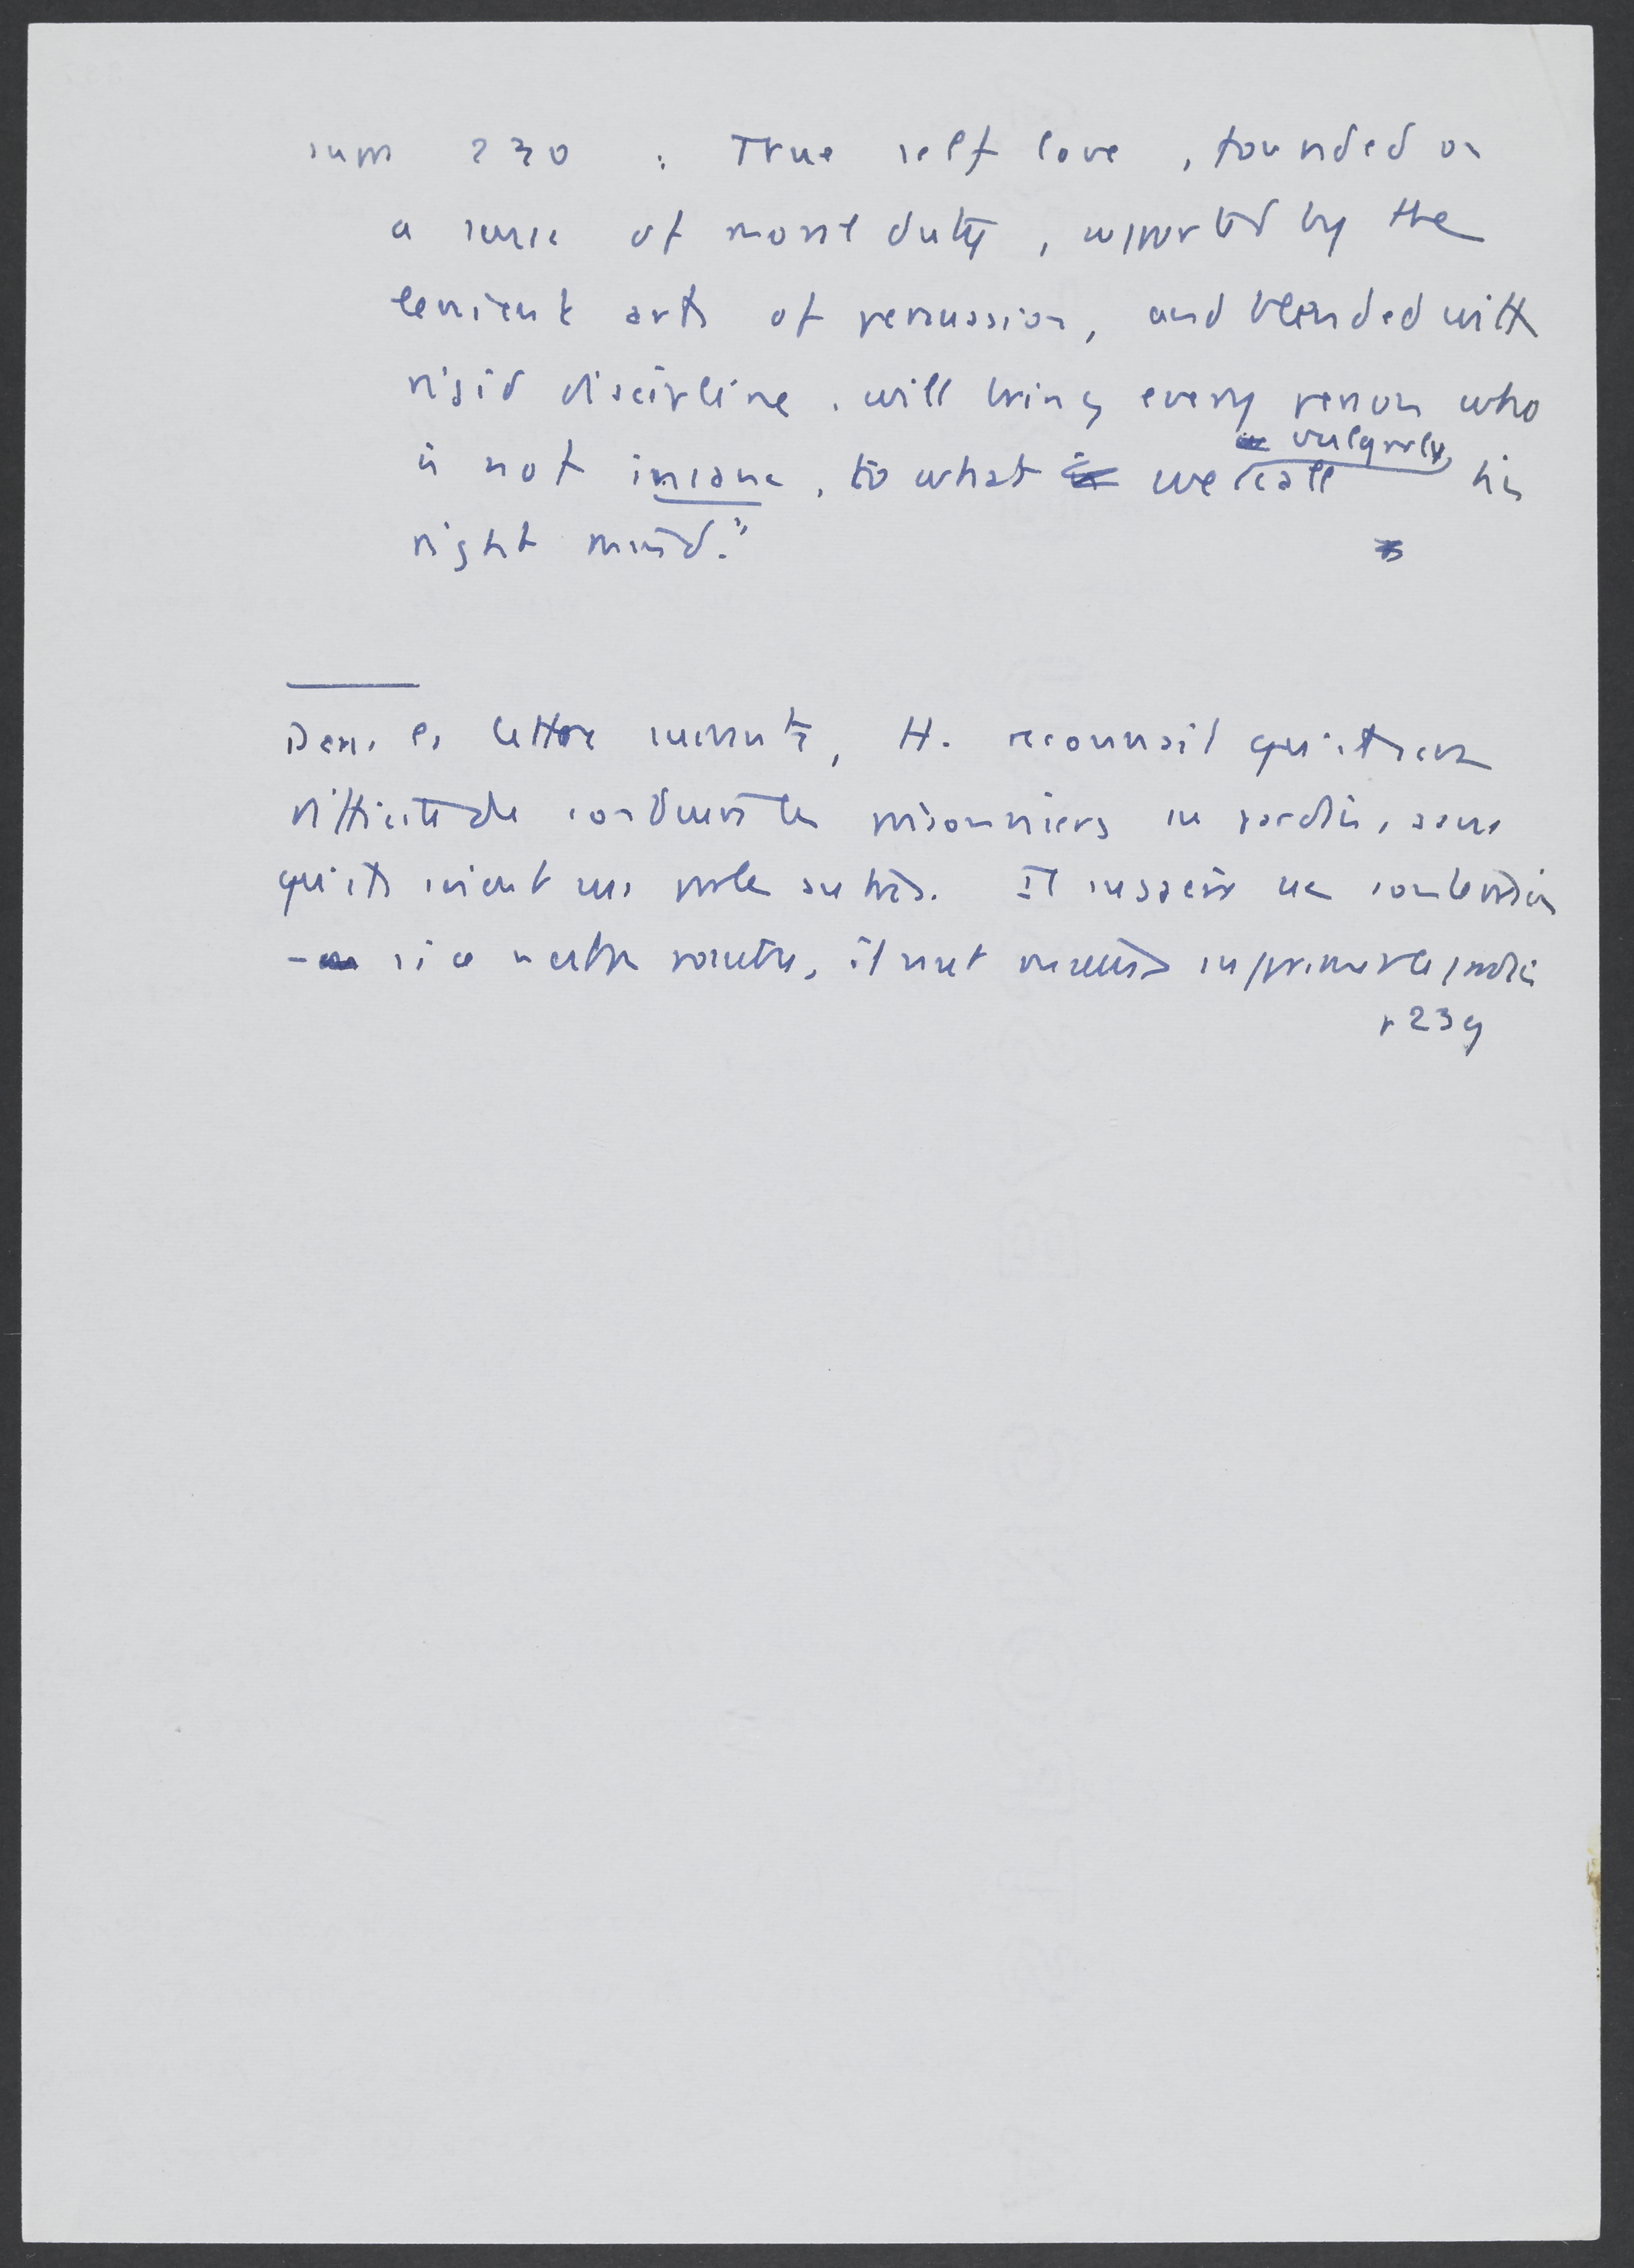 supp 230 : True self love, founded on
a sense of moral duty, supported by the
lenient arts of persuasion, and blended with
rigid discipline, will bring every person who
is not insane, to what we vulgarly call his
right mind."
Dans la lettre suivante, H. reconnait qu'il sera
difficile de conduire les prisonniers au jardin, sans
qu'ils soient vus par les autres. Il suggère une
si ce n'est pas, il peut supprimer le jardin
p 239